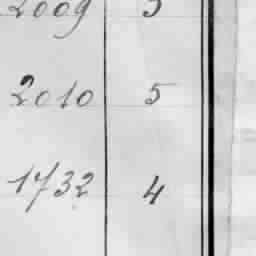 2009 5
2010 5
1732 4